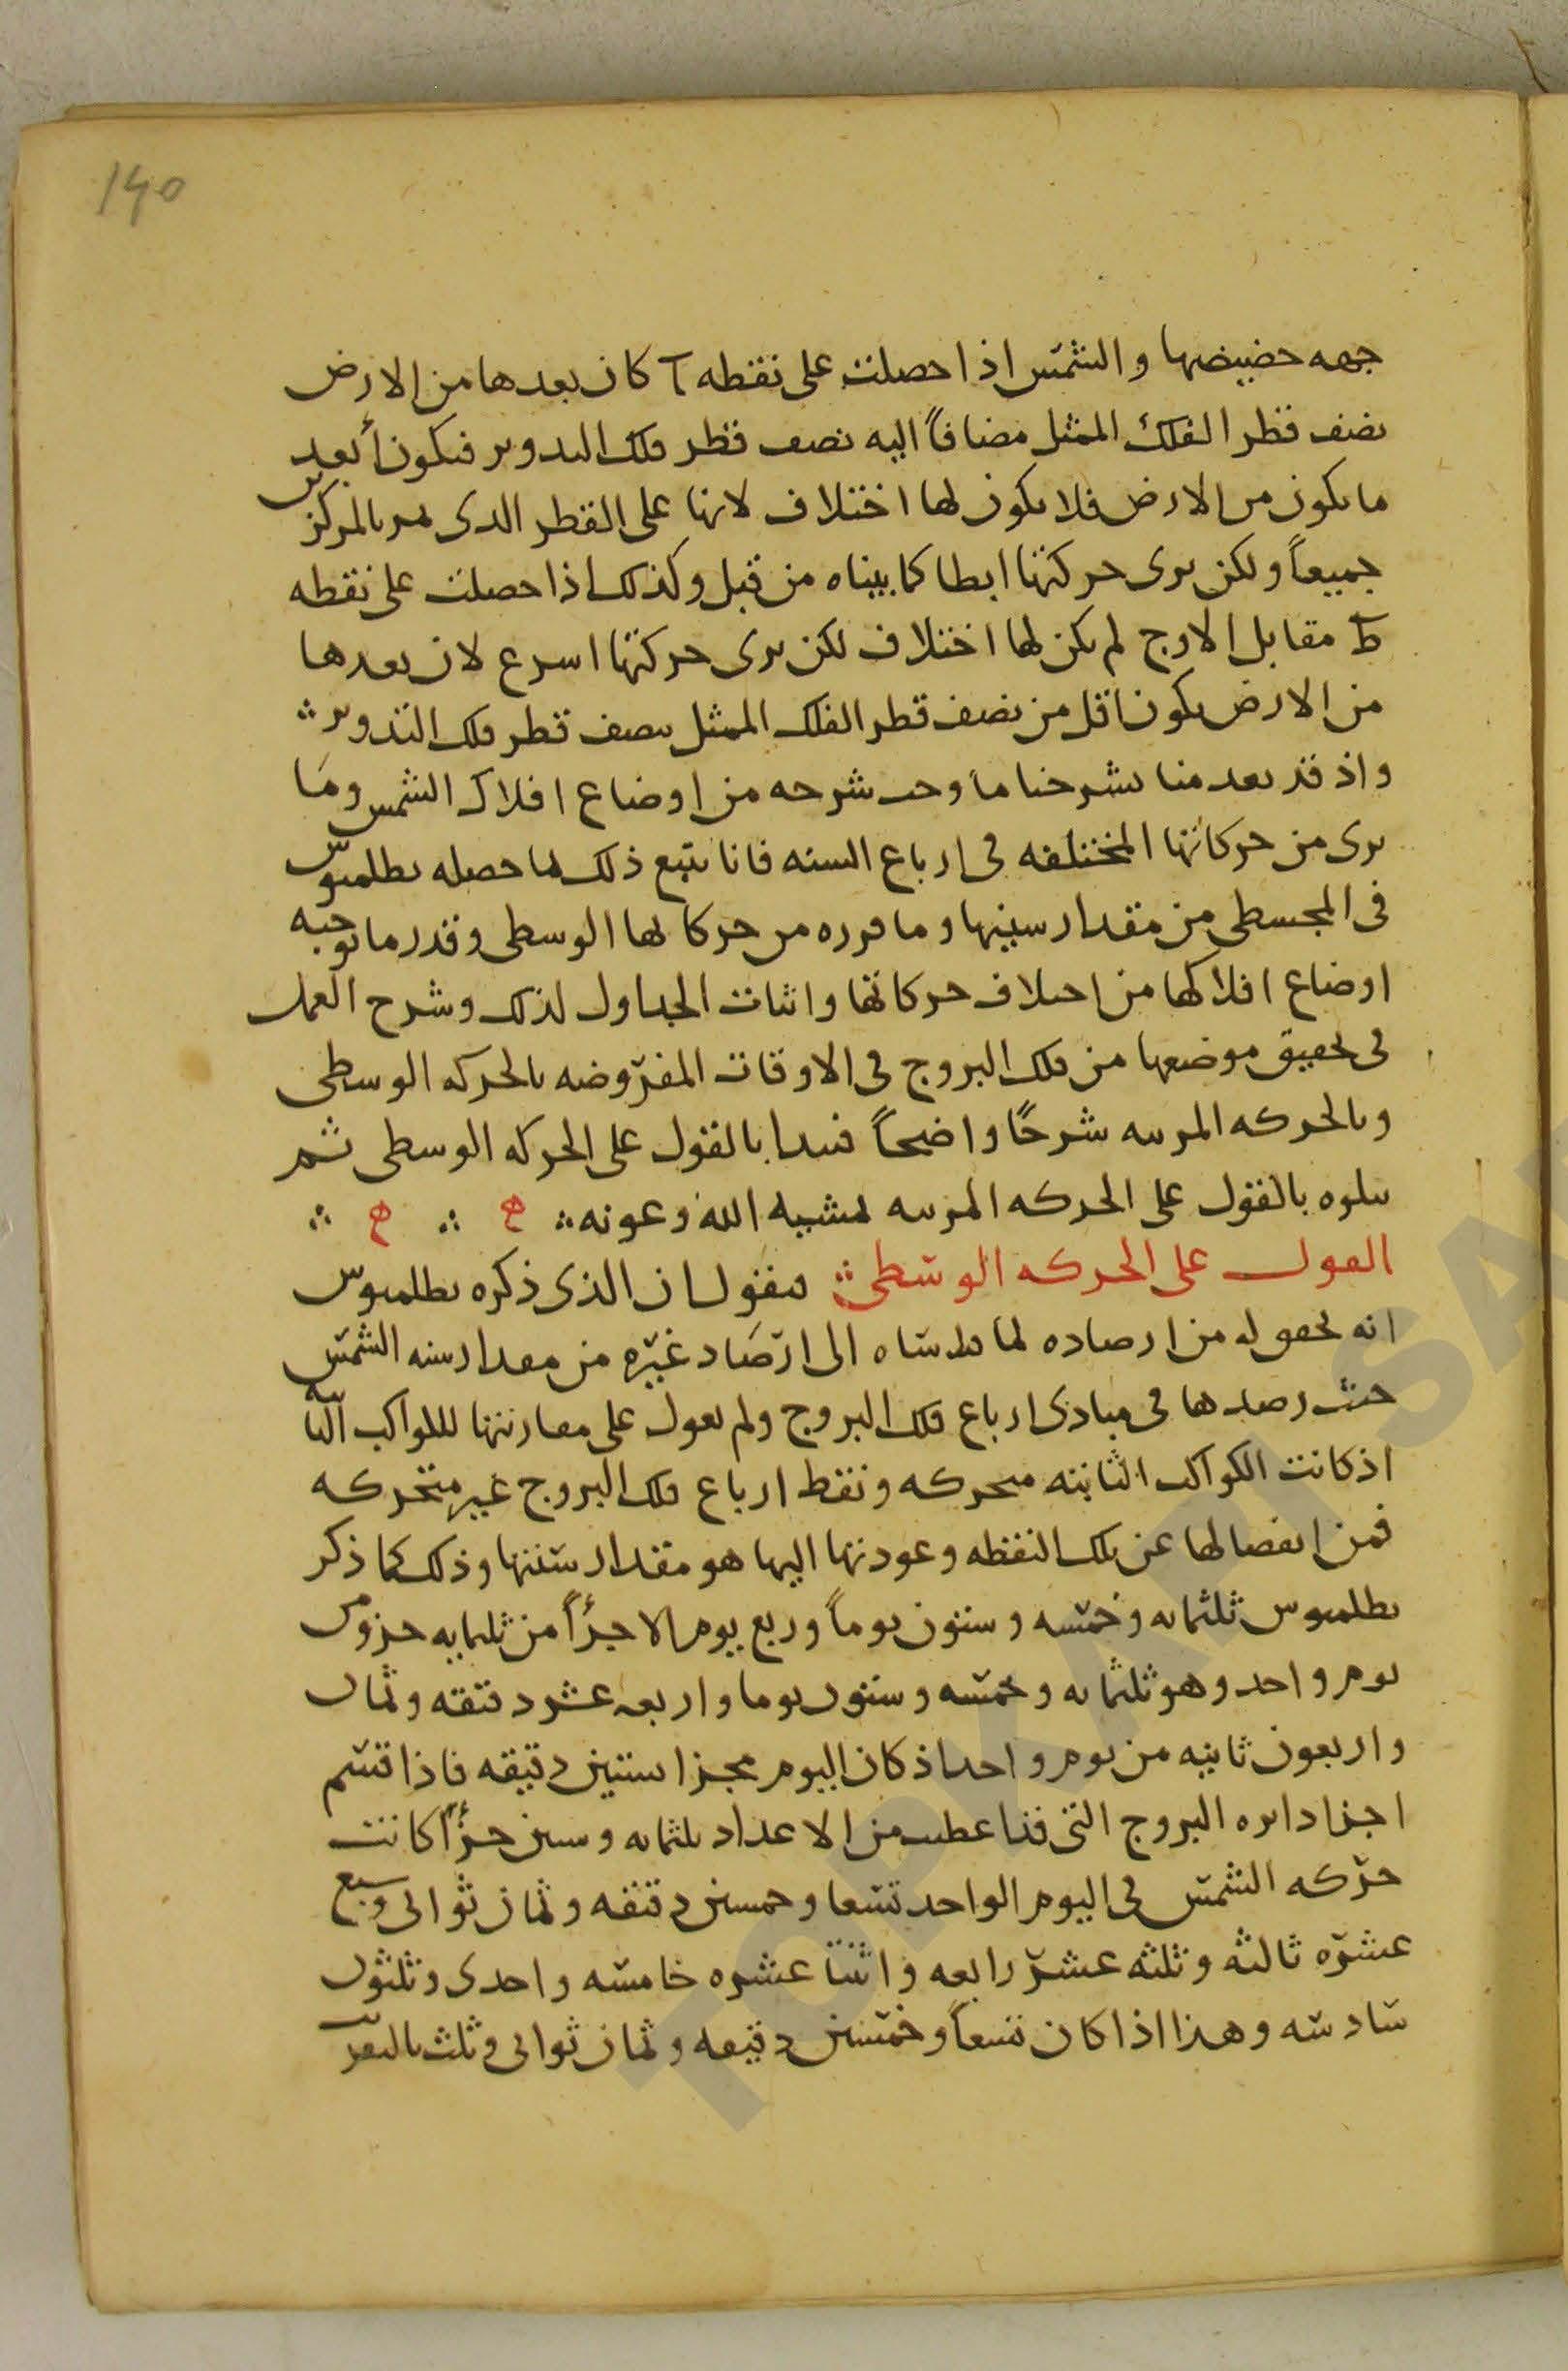 140
جهه حضيضها والشمس اذا حصلت على نقطه آ كان بعدها من الارض
نصف قطر الفلك الممثل مضافاً اليه نصف قطر فلك التدوير فيكون أبعد
ما يكون من الارض فلا يكون لها اختلاف لانها على القطر الذى يمر بالمركزين
جميعاً ولكن يرى حركتها ابطا كما بيناه من قبل وكذلك اذا حصلت على نقطه
ط مقابل الاوج لم يكن لها اختلاف لكن يرى حركتها اسرع لان بعدها
من الارض يكون اقل من نصف قطر الفلك الممثل بنصف قطر فلك التدوير ∴
واذ قد تقدمنا بشرحنا ما وجب شرحه من اوضاع افلاك الشمس وما
يرى من حركاتها المختلفه فى ارباع السنه فانا نتبع ذلك بما حصله بطلميوس
فى المجسطى من مقدار سنيها وما قرره من حركاتها الوسطى وقدر ما توجبه
اوضاع افلاكها من اختلاف حركاتها واثبات الجداول لذلك وشرح العمل
فى تحقيق موضعها من فلك البروج فى الاوقات المفروضه بالحركه الوسطى
وبالحركه المرييه شرحاً واضحاً فنبدا بالقول على الحركه الوسطى ثم
نتلوه بالقول على الحركه المرييه بمشيه الله وعونه ∴ ه ∴ ه ∴
القول على الحركه الوسطى ∴ فنقول ان الذى ذكره بطلميوس
انه تحقق له من ارصاده لما قاسها الى ارصاد غيره من مقدار سنه الشمس
حيث رصدها فى مبادى ارباع فلك البروج ولم يعول على مقارنتها للكواكب الثابته
اذ كانت الكواكب الثابته متحركه ونقط ارباع فلك البروج غير متحركه
فمن انفصالها عن تلك النقطه وعودتها اليها هو مقدار سنتها وذلك كما ذكر
بطلميوس ثلثمايه وخمسه وستون يوماً وربع يوم الا جزأً من ثلثمايه جزو من
يوم واحد وهو ثلثمايه وخمسه وستون يوما واربعه عشر دقيقه وثمان
واربعون ثانيه من يوم واحد اذ كان اليوم مجزا بستين دقيقه فاذا قسم
اجزا دايره البروج التى قد اعطيت من الاعداد ثلثمايه وستين جزأً كانت
حركه الشمس فى اليوم الواحد تسعا وخمسين دقيقه وثمان ثوانى وسبع
عشره ثالثه وثلثه عشر رابعه واثنتا عشره خامسه واحدى وثلثون
سادسه وهذا اذا كان تسعاً وخمسين دقيقه وثمان ثوانى وثلث بالتقريب